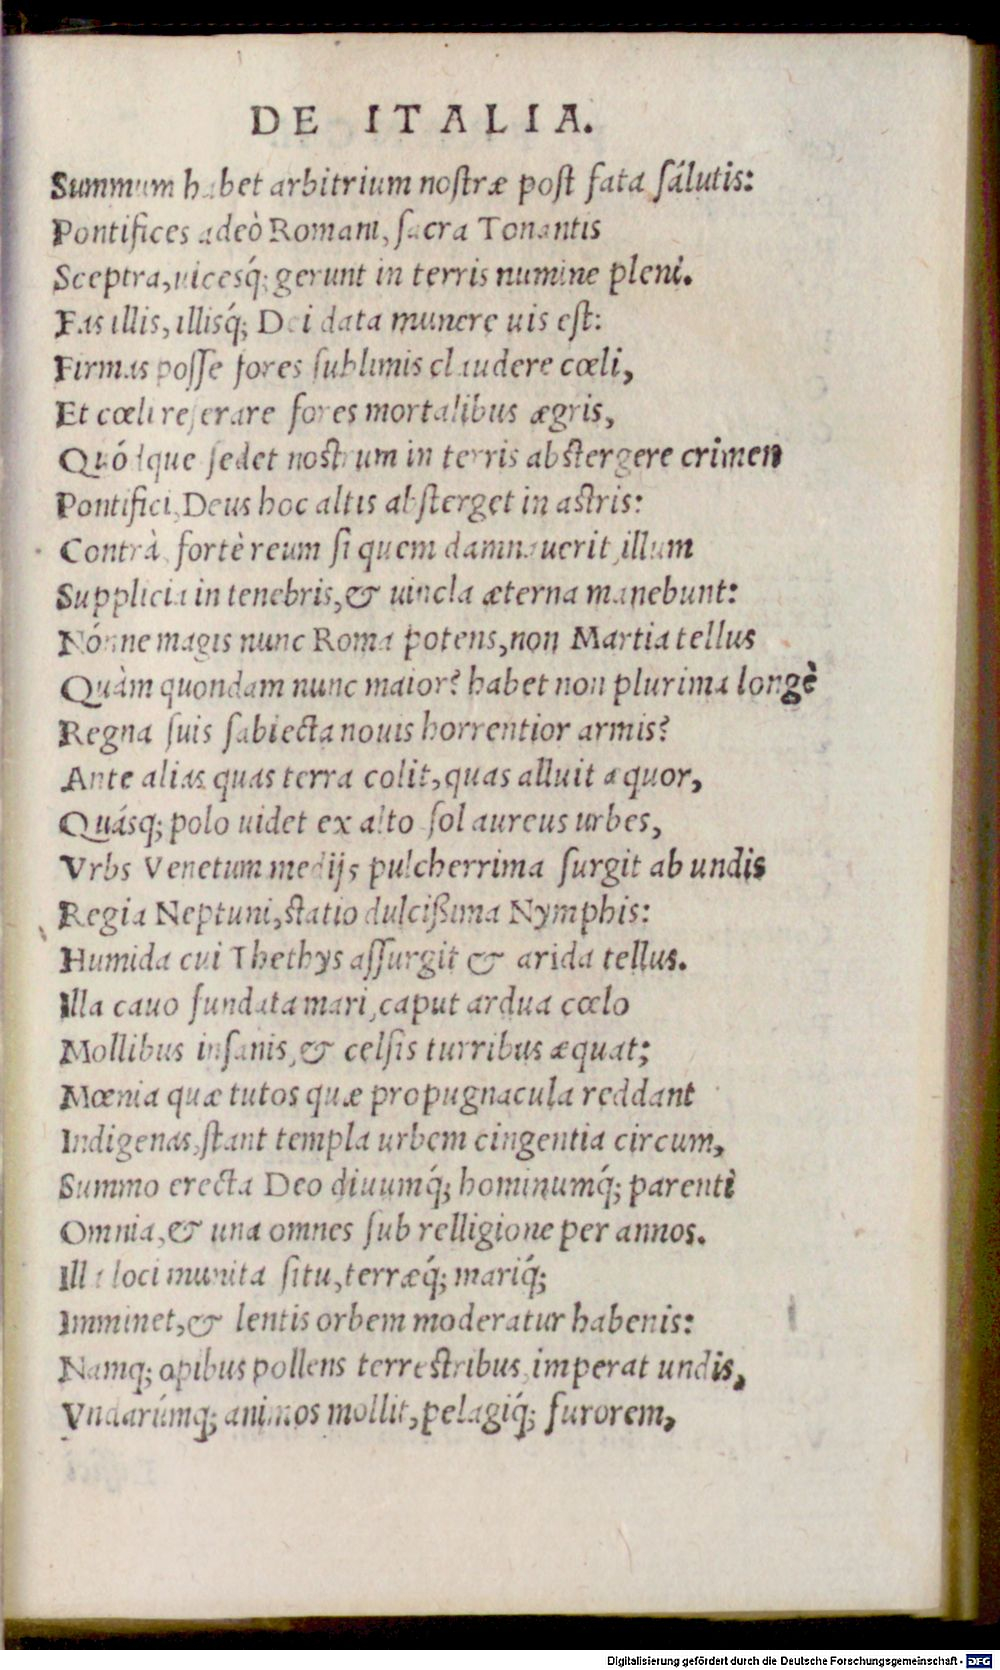 DE ITALIA.
Summum habet arbitrium nostræ post fata sálutis:
Pontifices adeò Romani, sacra Tonantis
Sceptra, uicesq́; gerunt in terris numine pleni.
Fas illis, illisq́; Dei data munere uis est:
Firmas posse fores sublimis claudere cœli,
Et cœli reserare fores mortalibus ægris,
Quódque sedet nostrum in terris abstergere crimen
Pontifici, Deus hoc altis absterget in astris:
Contrà, fortè reum si quem damnauerit, illum
Supplicia in tenebris, & uincla æterna manebunt:
Nónne magis nunc Roma potens, non Martia tellus
Quàm quondam nunc maior? habet non plurima longè
Regna suis sabiecta nouis horrentior armis?
Ante alias quas terra colit, quas alluit æquor,
Quásq; polo uidet ex alto sol aureus urbes,
Vrbs Venetum medijs pulcherrima surgit ab undis
Regia Neptuni, statio dulcißima Nymphis:
Humida cui Thethys assurgit & arida tellus.
Illa cauo fundata mari, caput ardua cœlo
Mollibus insanis, & celsis turribus æquat;
Mœnia quæ tutos quæ propugnacula reddant
Indigenas, stant templa urbem cingentia circum,
Summo erecta Deo diuumq́; hominumq́; parenti
Omnia, & una omnes sub relligione per annos.
Illa loci munita situ, terræq́; mariq́;
Imminet, & lentis orbem moderatur habenis:
Namq; opibus pollens terrestribus, imperat undis,
Vndarúmq; animos mollit, pelagiq́; furorem,
Digitalisierung gefördert durch die Deutsche Forschungsgemeinschaft - DFG